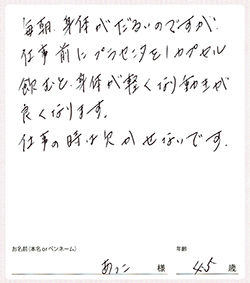 毎朝、身体がだるいのですが、
仕事前にプラセンタを1カプセル
飲むと、身体が軽くなり動きが
良くなります。
仕事の時は欠かせないです。
お名前(本名orペンネーム) 年齢
あっこ 様 45 歳